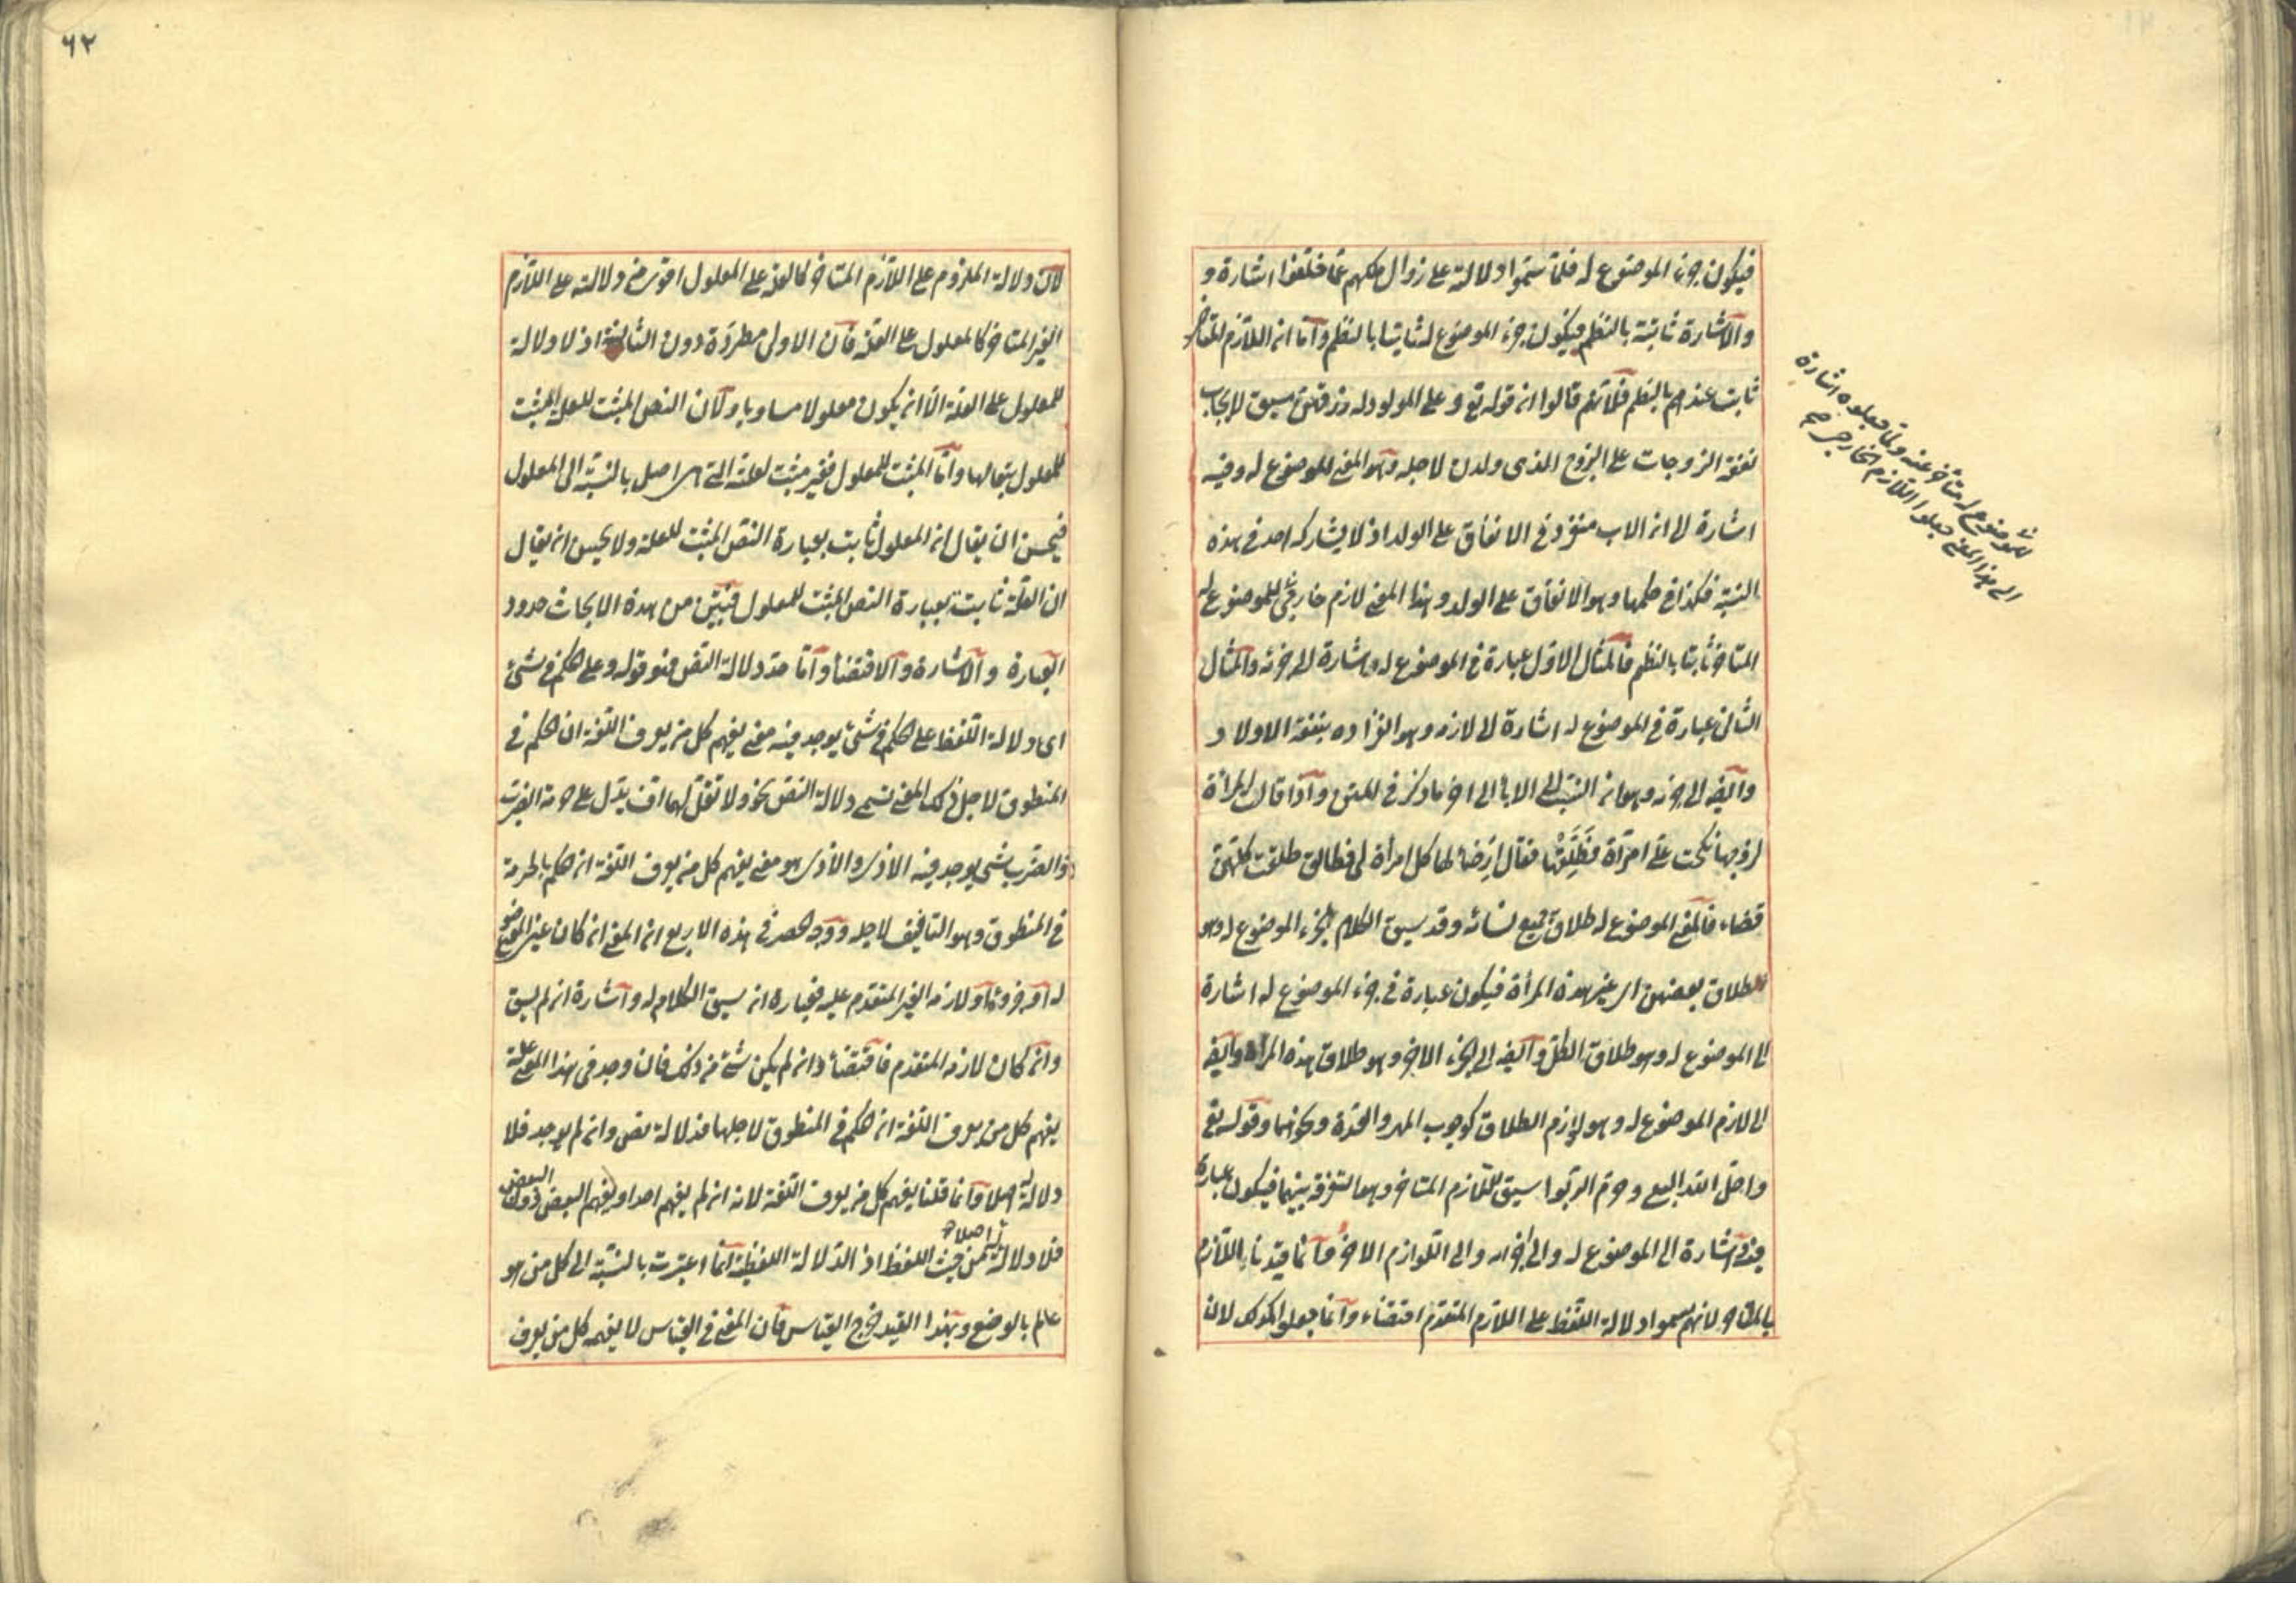 فيكون جزء الموضوع له فلما سموا دلالته على زوال ملكهم عما خلفوا اشارة و
والاشارة ثابتة بالنظم فيكون جزء الموضوع له ثابتا بالنظم واما ان اللازم المتاخر
ثابت عندهم بالنظم فلانهم قالوا ان قوله تع وعلى المولود له رزقهن سيق لايجاب
نفقة الزوجات على الزوج الذى ولدن لاجله وهو المعنى الموضوع له وفيه
اشارة الى ان الاب منفرد فى الانفاق على الولد اذ لا يشاركه احد فى هذه
النسبة فكذا فى حكمها وهو الانفاق على الولد وهذا المعنى لازم خارجى للموضوع له
المتاخر ثابتا بالنظم فالمثال الاول عبارة فى الموضوع له اشارة الى جزئه والمثال
الثانى عبارة فى الموضوع له اشارة الى لازمه وهو انفراده بنفقة الاولاد
وايضا الى جزئه وهو ان النسب الى الاباء الى اخر ما ذكر فى المتن واذا قال لامراة
لزوجها نكحت على امرأة فطلقها فقال ارضاء لها كل امرأة لى فطالق طلقت كلهن
قضاء فالمعنى الموضوع له طلاق جميع نسائه وقد سيق الكلام لجزء الموضوع له وهو
طلاق بعضهن اى غير هذه المرأة فيكون عبارة فى جزء الموضوع له اشارة
الى الموضوع له وهو طلاق الكل وايضا الى الجزء الاخر وهو طلاق هذه المرأة وايضا
الى لازم الموضوع له وهو لازم الطلاق كوجوب المهر والعدة ونحوهما وقوله تع
واحل الله البيع وحرم الربوا سيق للازم المتاخر وهو التفرقة بينهما فيكون عبارة
فيه اشارة الى الموضوع له والى اجزائه والى اللوازم الاخر وانما قيدنا اللازم
بالمتاخر لانهم سموا دلالة اللفظ على اللازم المتقدم اقتضاء وانما جعلوا كذلك لان
للموضوع له متاخر عنه ولما جعلوه اشارة
الى هذا المعنى جعلوا اللازم الخارجى صح
٦٢
لان دلالة الملزوم على اللازم المتاخر كالعلة على المعلول اقوى من دلالته على اللازم
الغير المتاخر كالمعلول على العلة فان الاولى مطردة دون الثانية اذ لا دلالة
للمعلول على العلة الا ان يكون معلولا مساويا ولان النص المثبت للعلة المثبت
للمعلول بتعالها واما المثبت للمعلول فغير مثبت لعلته التى هى اصل بالنسبة الى المعلول
فيحسن ان يقال ان المعلول ثابت بعبارة النص المثبت للعلة ولا يحسن ان يقال
ان العلة ثابت بعبارة النص المثبت للمعلول فتبين من هذه الابحاث حدود
العبارة والاشارة والاقتضاء واما حد دلالة النص فهو قوله وعلى الحكم فى شئ
اى دلالة اللفظ على الحكم فى شئ يوجد فيه معنى يفهم كل من يعرف اللغة ان الحكم فى
المنطوق لاجل ذلك المعنى تسمى دلالة النص نحو ولا تقل لهما اف يدل على حرمة الضرب
والضرب شئ يوجد فيه الاذى والاذى هو معنى يفهم كل من يعرف اللغة ان الحكم بالحرمة
فى المنطوق وهو التافيف لاجله ووجه الحصر فى هذه الاربع ان المعنى ان كان عين الموضوع
له او جزؤه او لازمه الغير المتقدم عليه فعبارة ان سيق الكلام له واشارة ان لم يسق
وان كان لازمه المتقدم فاقتضاء وان لم يكن شئ من ذلك فان وجد فى هذا المعنى علة
يفهم كل من يعرف اللغة ان الحكم فى المنطوق لاجلها فدلالة نص وان لم يوجد فلا
دلالة له اصلا وانما قلنا يفهم كل من يعرف اللغة لانه ان لم يفهم احد او يفهم البعض دون البعض
فلا دلالة له اصلا من حيث اللفظ اذ الدلالة اللفظية انما اعتبرت بالنسبة الى كل من هو
عالم بالوضع وبهذا القيد خرج القياس فان المعنى فى القياس لا يفهمه كل من يعرف